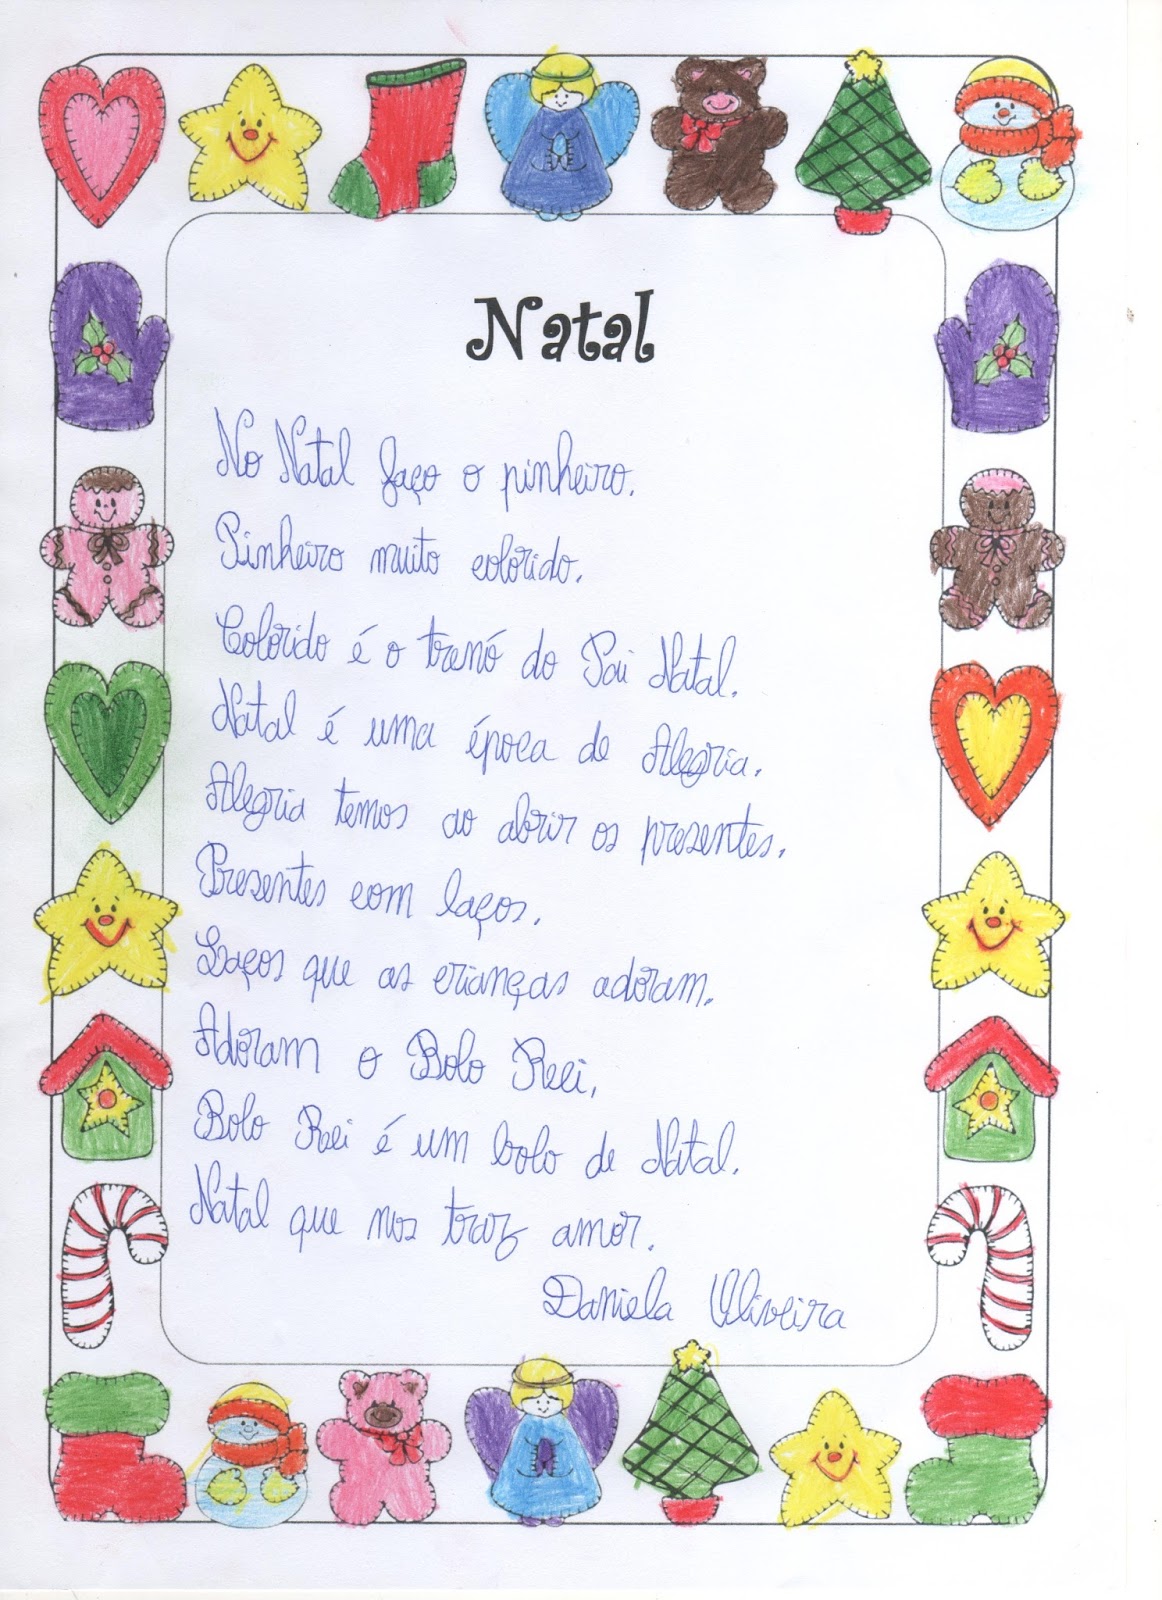 Natal
No Natal faço o pinheiro.
Pinheiro muito colorido.
Colorido é o trenó do Pai Natal.
Natal é uma época de Alegria.
Alegria temos ao abrir os presentes.
Presentes com laços.
Laços que as crianças adoram.
Adoram o Bolo Reei.
Bolo Reei é um bolo de Natal.
Natal que nos traz amor.
Daniela Oliveira